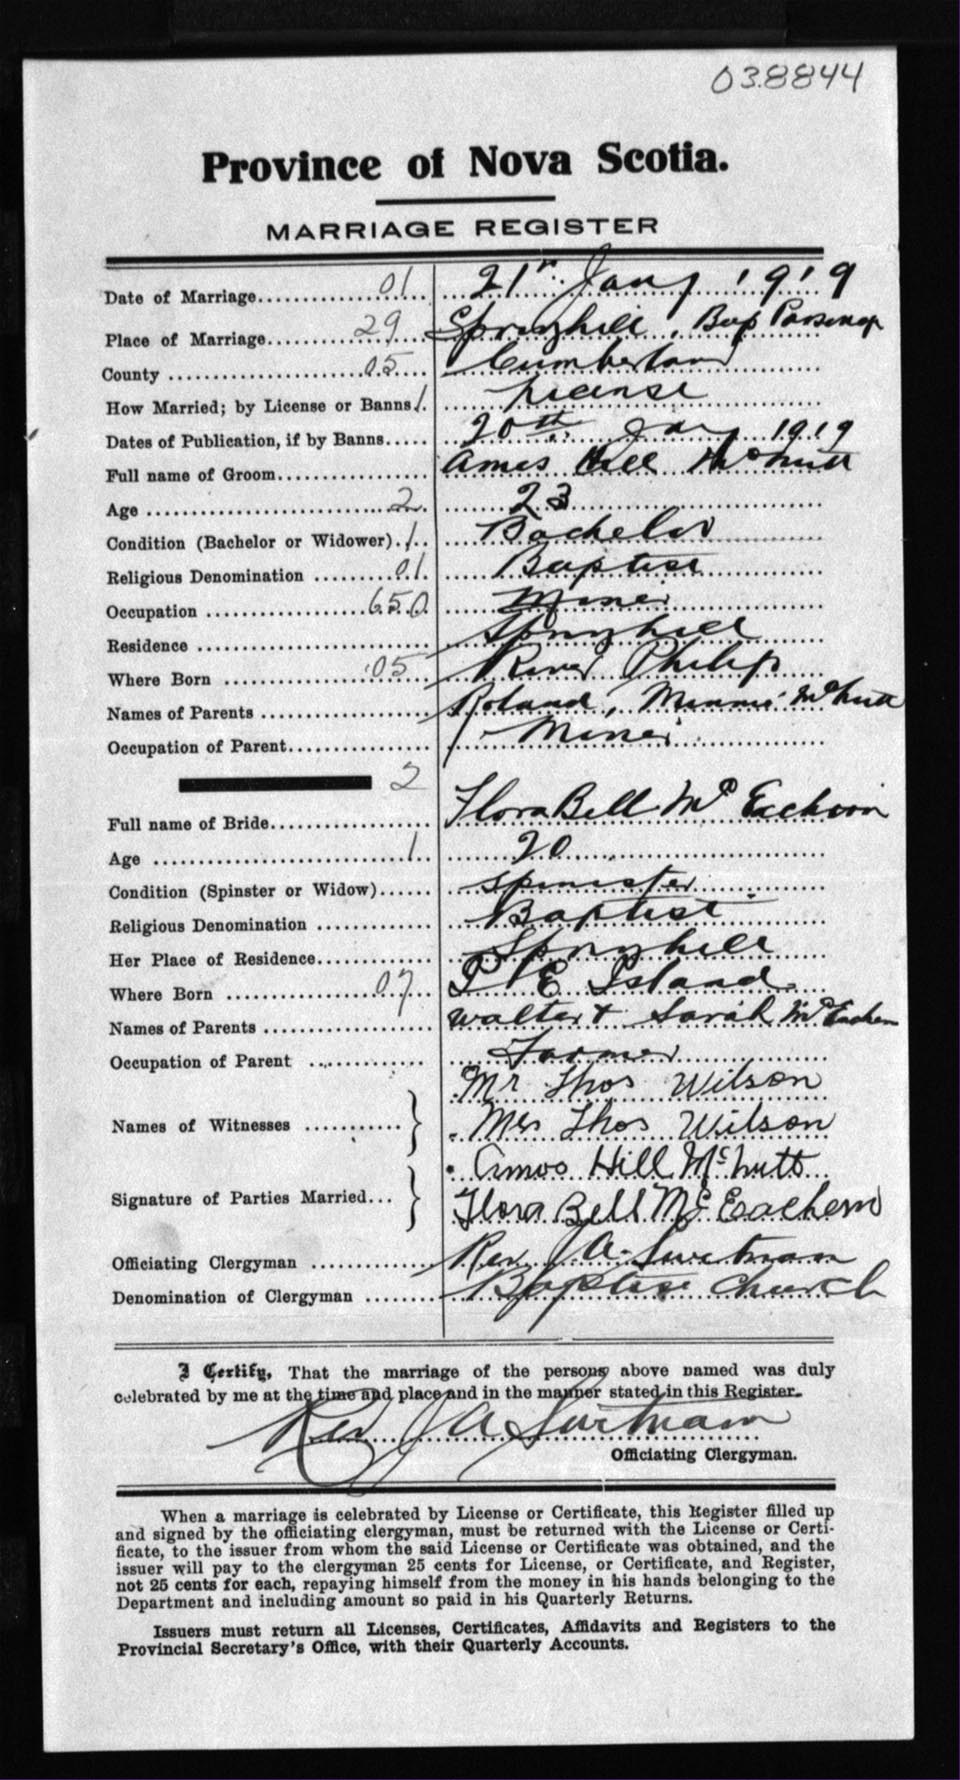 038844
Province of Nova Scotia.
MARRIAGE REGISTER
Date of Marriage 01 21st Jany 1919
Place of Marriage 29 Springhill, Bap Parsonage
County 05 Cumberland
How Married; by License or Banns 1 License
Dates of Publication, if by Banns 20th Jany 1919
Full name of Groom Amos Hill McNutt
Age 2 23
Condition (Bachelor or Widower) 1 Bachelor
Religious Denomination 01 Baptist
Occupation 650 Miner
Residence Springhill
Where Born 05 River Philip
Names of Parents Roland, Minnie McNutt
Occupation of Parent Miner
2
Full name of Bride Flora Bell McEachern
Age 1 20
Condition (Spinster or Widow) Spinster
Religious Denomination Baptist
Her Place of Residence Springhill
Where Born 07 P E Island
Names of Parents Walter + Sarah McEachern
Occupation of Parent Farmer
Mr Thos Wilson
Names of Witnesses Mrs Thos Wilson
Amos Hill McNutt
Signature of Parties Married Flora Bell McEachern
Officiating Clergyman Rev J A
Denomination of Clergyman Baptist Church
I Certify, That the marriage of the persons above named was duly
celebrated by me at the time and place and in the manner stated in this Register.
Rev J A
Officiating Clergyman.
When a marriage is celebrated by License or Certificate, this Register filled up
and signed by the officiating clergyman, must be returned with the License or Certi-
ficate, to the issuer from whom the said License or Certificate was obtained, and the
issuer will pay to the clergyman 25 cents for License, or Certificate, and Register,
not 25 cents for each, repaying himself from the money in his hands belonging to the
Department and including amount so paid in his Quarterly Returns.
Issuers must return all Licenses, Certificates, Affidavits and Registers to the
Provincial Secretary's Office, with their Quarterly Accounts.